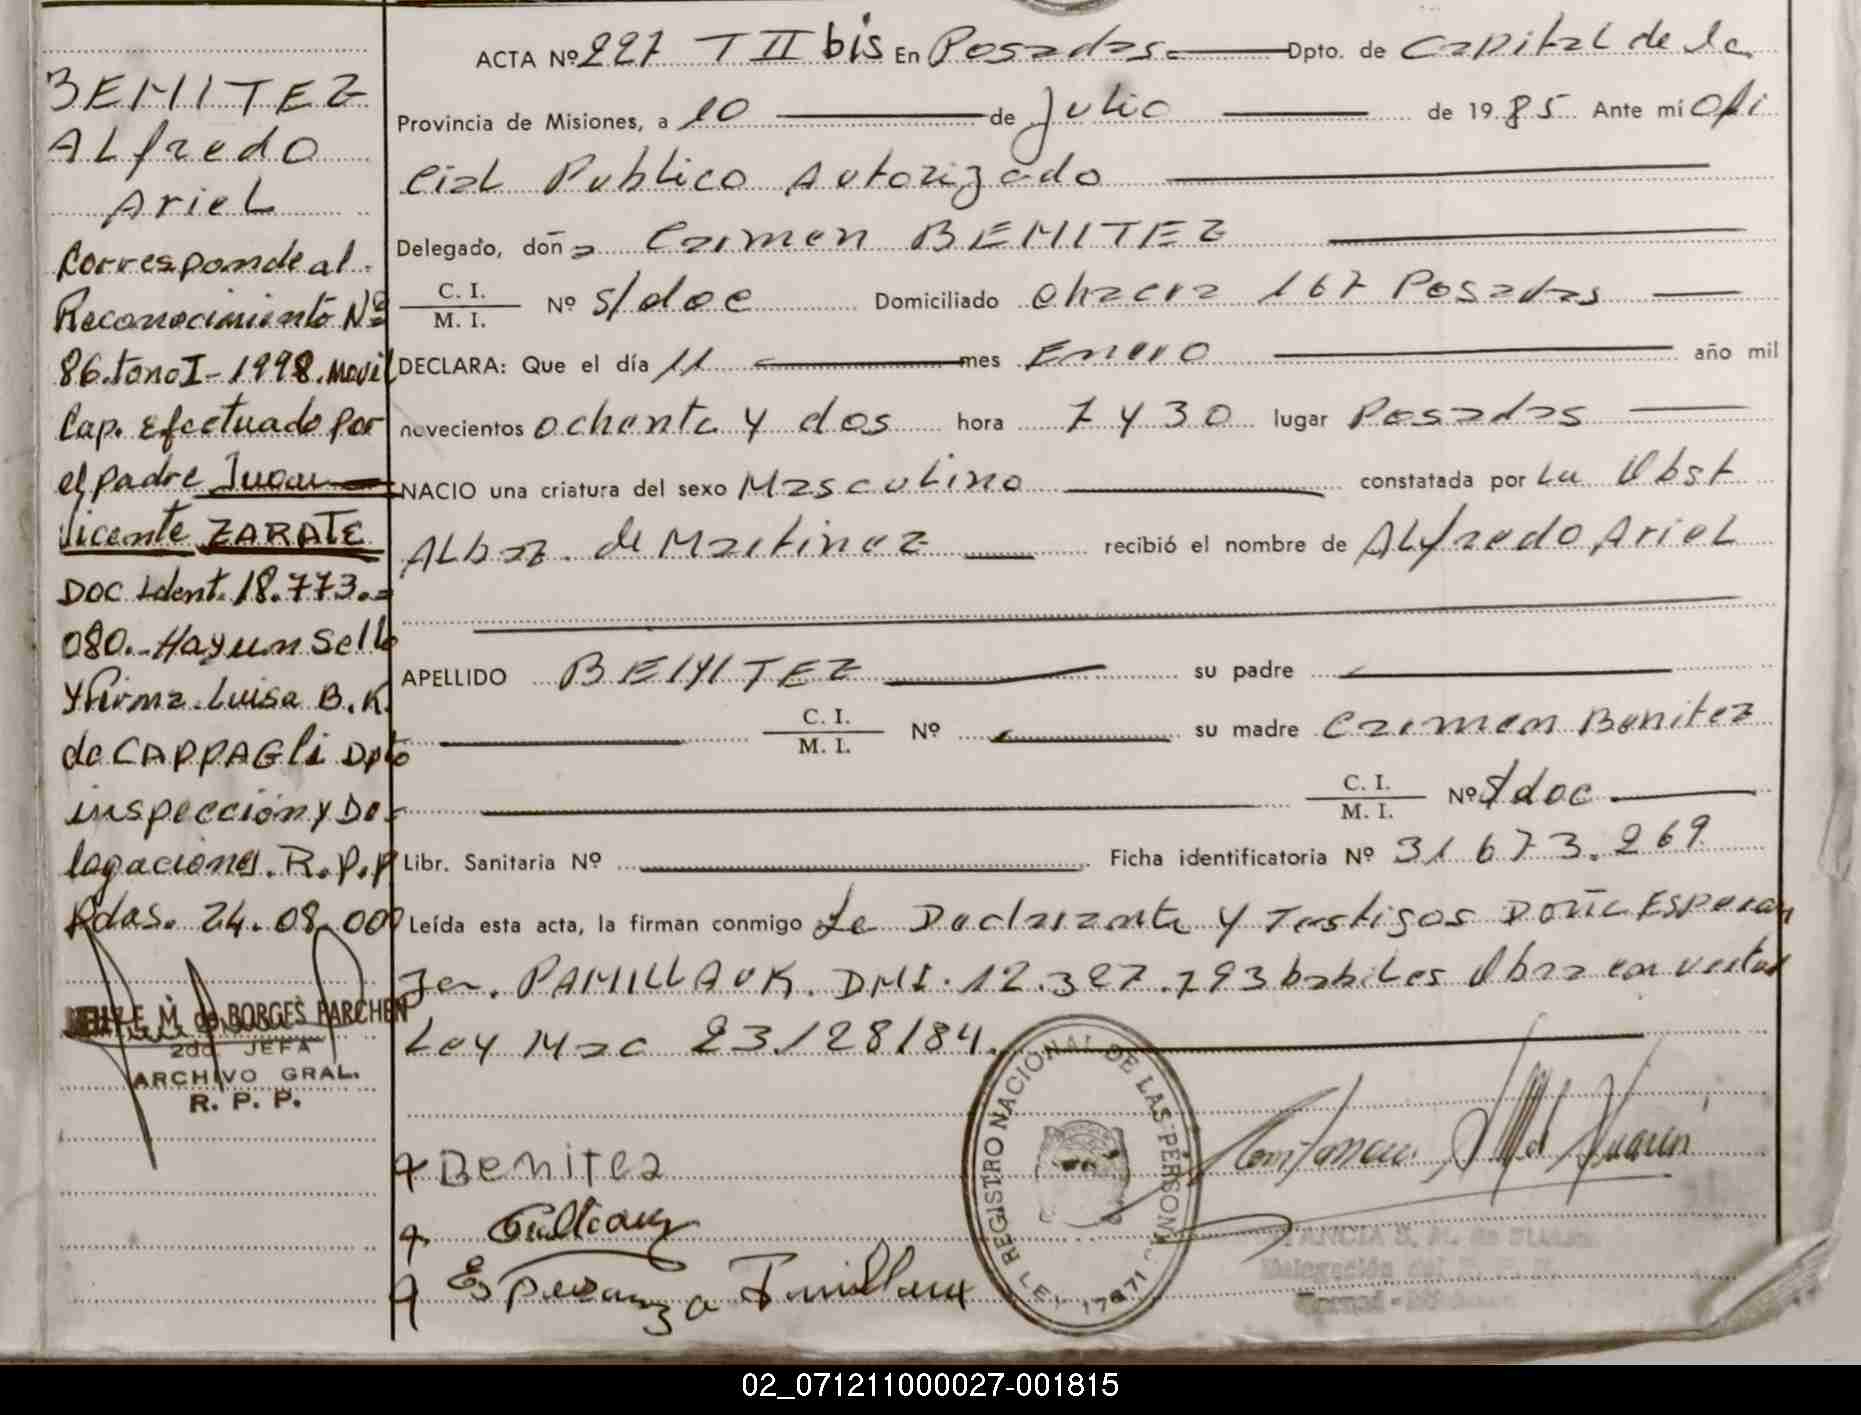 BENITEZ
Alfredo
Ariel
Corresponde al
Reconocimiento Nº
86. tomo I - 1998. Movil
Cap. efectuado por
el padre Juan
Vicente ZARATE
DOC Ident. 18.773.=
080.- Hay un Sello
y firma. Luisa B. K.
de CAPPAGli Dpto
inspección y De-
legaciones. R.P.P
Pdas. 24.08.000
M. de BORGES PARCHEN
2da. JEFA
ARCHIVO GRAL.
R. P. P.
ACTA Nº 227 T II bis En Posadas Dpto. de Capital de la
Provincia de Misiones, a 10 de Julio de 1985 Ante mí Ofi
cial Publico Autorizado
Delegado, doña Carmen BENITEZ
C. I. / M. I. Nº s/doc Domiciliado chacra 167 Posadas
DECLARA: Que el día 11 mes Enero año mil
novecientos ochenta y dos hora 7 y 30 lugar Posadas
NACIO una criatura del sexo Masculino constatada por La Obst
Albaz. de Martinez recibió el nombre de Alfredo Ariel
APELLIDO BENITEZ su padre
C. I. / M. I. Nº su madre Carmen Benitez
C. I. / M. I. Nº s/doc
Libr. Sanitaria Nº Ficha identificatoria Nº 31.673.269
Leída esta acta, la firman conmigo La Declarante y Testigos Doña Esperan
za. DMI. 12.327.793 habiles Obra en virtud
Ley Nac 23128/84.
Benitez
Esperanza
REGISTRO NACIONAL DE LAS PERSONAS
LEY 17671
02_071211000027-001815